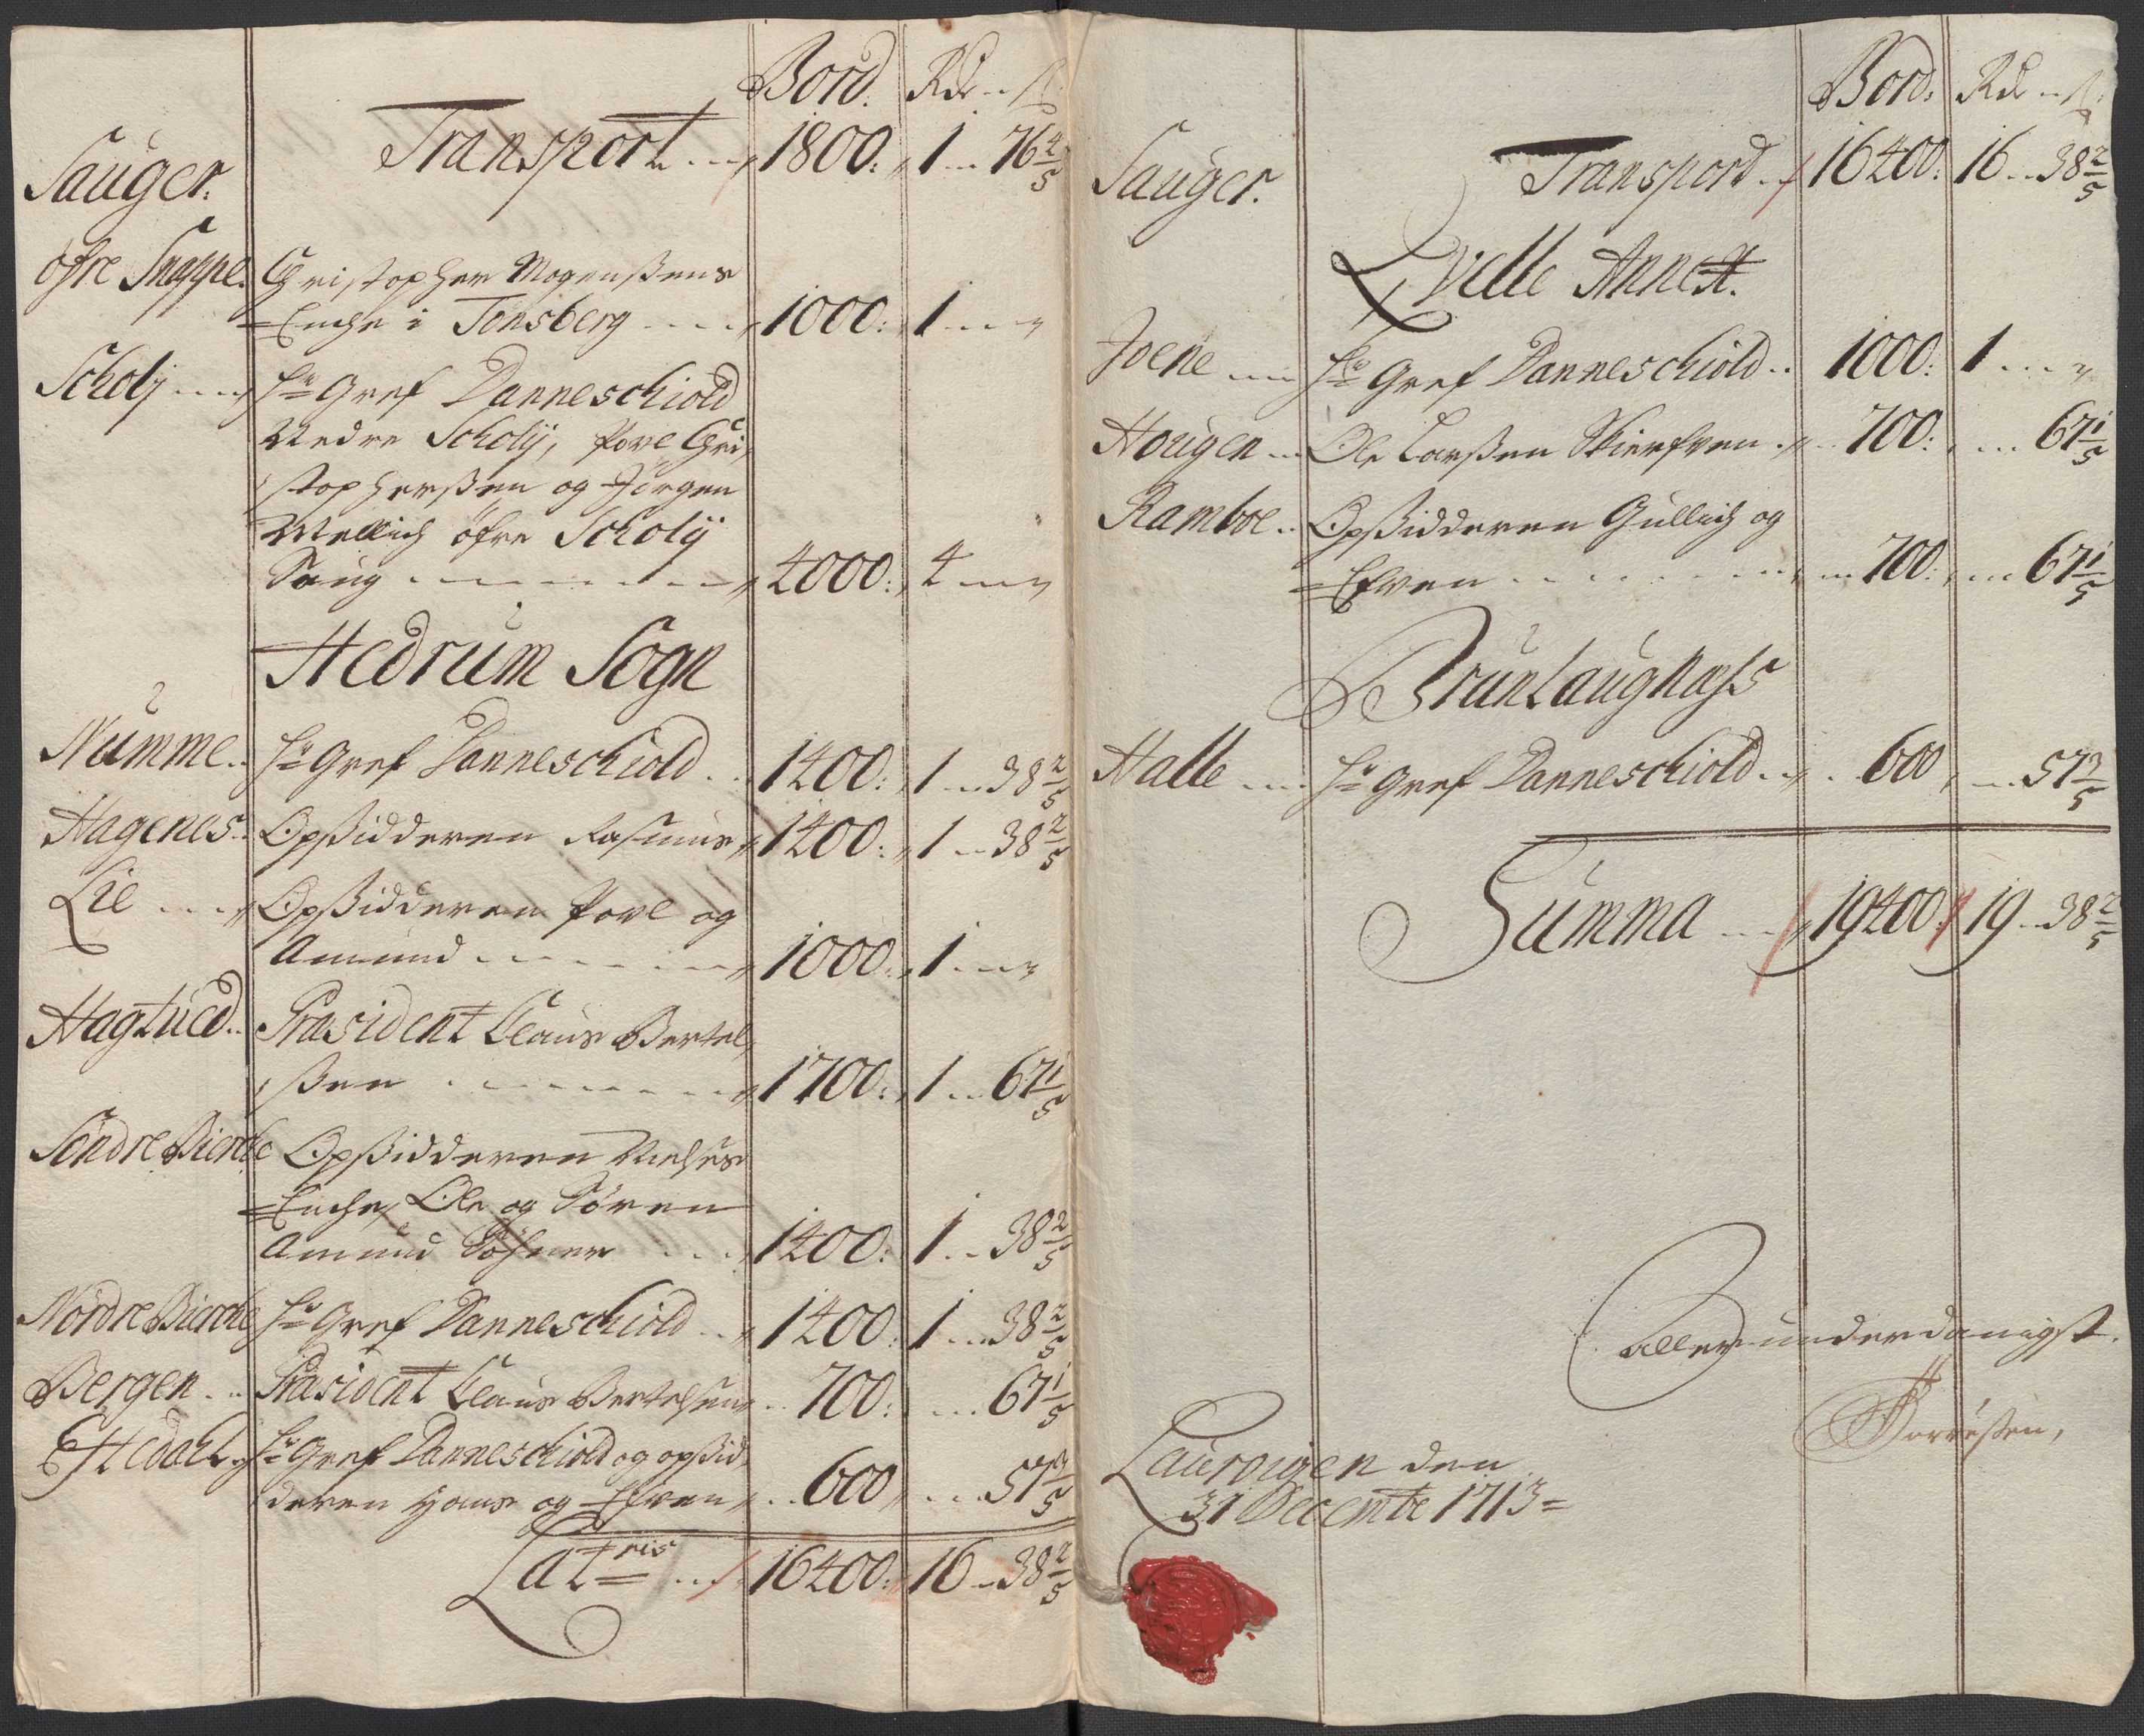 Bord: Rdr ß
Sauger. Transport 1800: 1 76 4/5
öfre Snappe. Christopher Mogenßens
Enche i Tönsberg 1000: 1
Scholj Hr Gref Danneschiold
Nedre Scholij, Povel Chri
stopherßen og Jörgen
Mellich öfre Scholij
Saug 4000: 4
Hedrum Sogn
Numme Hr Gref Danneschiold 1400: 1 38 2/5
Hagenes Opßidderen Rasmus 1400: 1 38 2/5
Lie Opßidderen Povel og
Amund 1000: 1
Hagtued Præsident Claus Bertel
ßen 1700: 1 67 1/5
Söndre Bierche Opßidderen Nielses
Enche, Ole og Sören
Amund Söhner 1400: 1 38 2/5
Nordre Bierche Hr Gref Danneschiold 1400: 1 38 2/5
Bergen Præsident Claus Bertelsen 700: 67 1/5
Hedahl Hr Gref Danneschiold og opßid
deren Hans og Efven 600 57 3/5
Latris 16400: 16 38 2/5
Bord: Rdr ß
Sauger. Transpord 16400: 16 38 2/5
Qvelle Annext.
Joene Hr Gref Danneschiold 1000: 1
Hougen Ole Larßen Skierfven 700: 67 1/5
Ramboe Opßidderen Gullich og
Efven 700: 67 1/5
Brunlaugnæss
Halle Hr Gref Danneschiold 600 57 3/5
Summa 19400: 19 38 2/5
Allerunderdanigst.
Laurvigen den
31 Decembr 1713